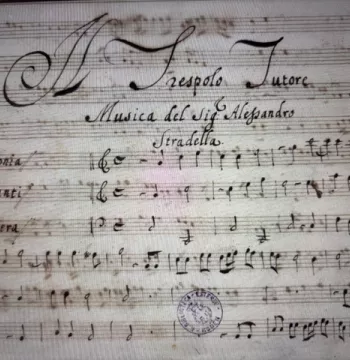 Il Trespolo Tutore
Musica del Sig.r Alessandro
Stradella.